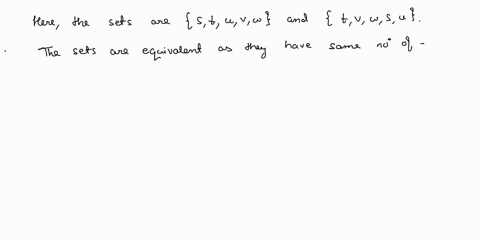 Here, the sets are { s, t, u, v, w } and { t, v, w, s, u }.
The sets are equivalent as they have same no° of -